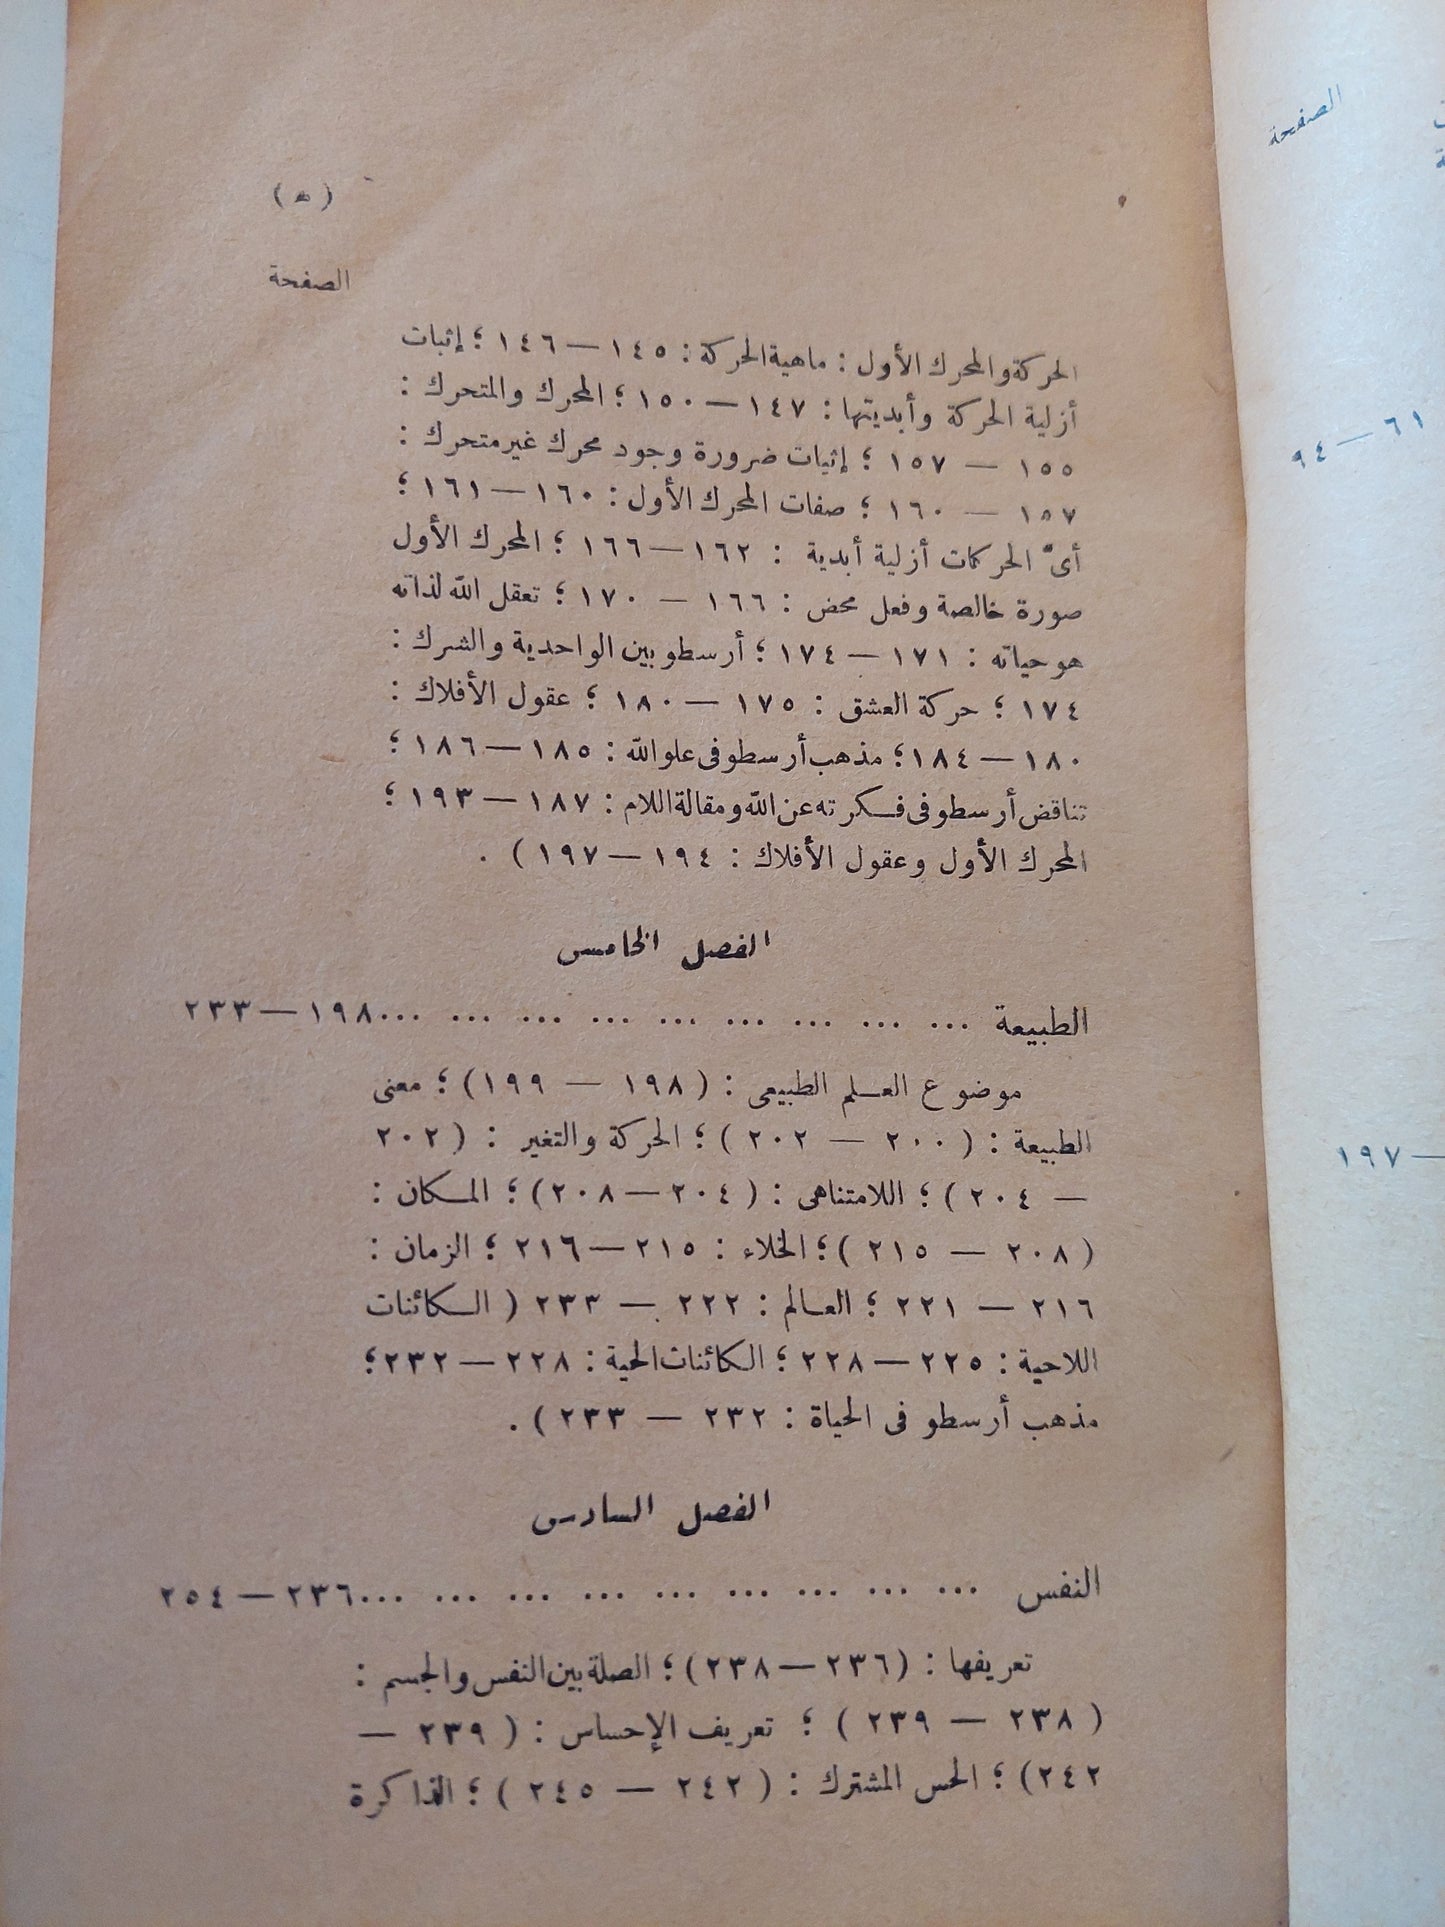 ( ه )
الصفحة
الحركة والمحرك الأول : ماهية الحركة : ١٤٥ — ١٤٦ ؛ إثبات
أزلية الحركة وأبديتها : ١٤٧ — ١٥٠ ؛ المحرك والمتحرك :
١٥٥ — ١٥٧ ؛ إثبات ضرورة وجود محرك غير متحرك :
١٥٧ — ١٦٠ ؛ صفات المحرك الأول : ١٦٠ — ١٦١ ؛
أىّ الحركات أزلية أبدية : ١٦٢ — ١٦٦ ؛ المحرك الأول
صورة خالصة وفعل محض : ١٦٦ — ١٧٠ ؛ تعقل الله لذاته
هو حياته : ١٧١ — ١٧٤ ؛ أرسطو بين الواحدية والشرك :
١٧٤ ؛ حركة العشق : ١٧٥ — ١٨٠ ؛ عقول الأفلاك :
١٨٠ — ١٨٤ ؛ مذهب أرسطو فى علو الله : ١٨٥ — ١٨٦ ؛
تناقض أرسطو فى فكرته عن الله ومقالة اللام : ١٨٧ — ١٩٣ ؛
المحرك الأول وعقول الأفلاك : ١٩٤ — ١٩٧ ) .
الفصل الخامس
الطبيعة ... ... ... ... ... ... ... ... ... ١٩٨ — ٢٣٣
موضوع العلم الطبيعى : ( ١٩٨ — ١٩٩ ) ؛ معنى
الطبيعة : ( ٢٠٠ — ٢٠٢ ) ؛ الحركة والتغير : ( ٢٠٢
— ٢٠٤ ) ؛ اللامتناهى : ( ٢٠٤ — ٢٠٨ ) ؛ المكان :
( ٢٠٨ — ٢١٥ ) ؛ الخلاء : ٢١٥ — ٢١٦ ؛ الزمان :
٢١٦ — ٢٢١ ؛ العالم : ٢٢٢ — ٢٣٣ ( الكائنات
اللاحية : ٢٢٥ — ٢٢٨ ؛ الكائنات الحية : ٢٢٨ — ٢٣٢ ؛
مذهب أرسطو فى الحياة : ٢٣٢ — ٢٣٣ ) .
الفصل السادس
النفس ... ... ... ... ... ... ... ... ... ٢٣٦ — ٢٥٤
تعريفها : ( ٢٣٦ — ٢٣٨ ) ؛ الصلة بين النفس والجسم :
( ٢٣٨ — ٢٣٩ ) ؛ تعريف الإحساس : ( ٢٣٩ —
٢٤٢ ) ؛ الحس المشترك : ( ٢٤٢ — ٢٤٥ ) ؛ الذاكرة
الصفحة
٦١ — ٩٤
— ١٩٧